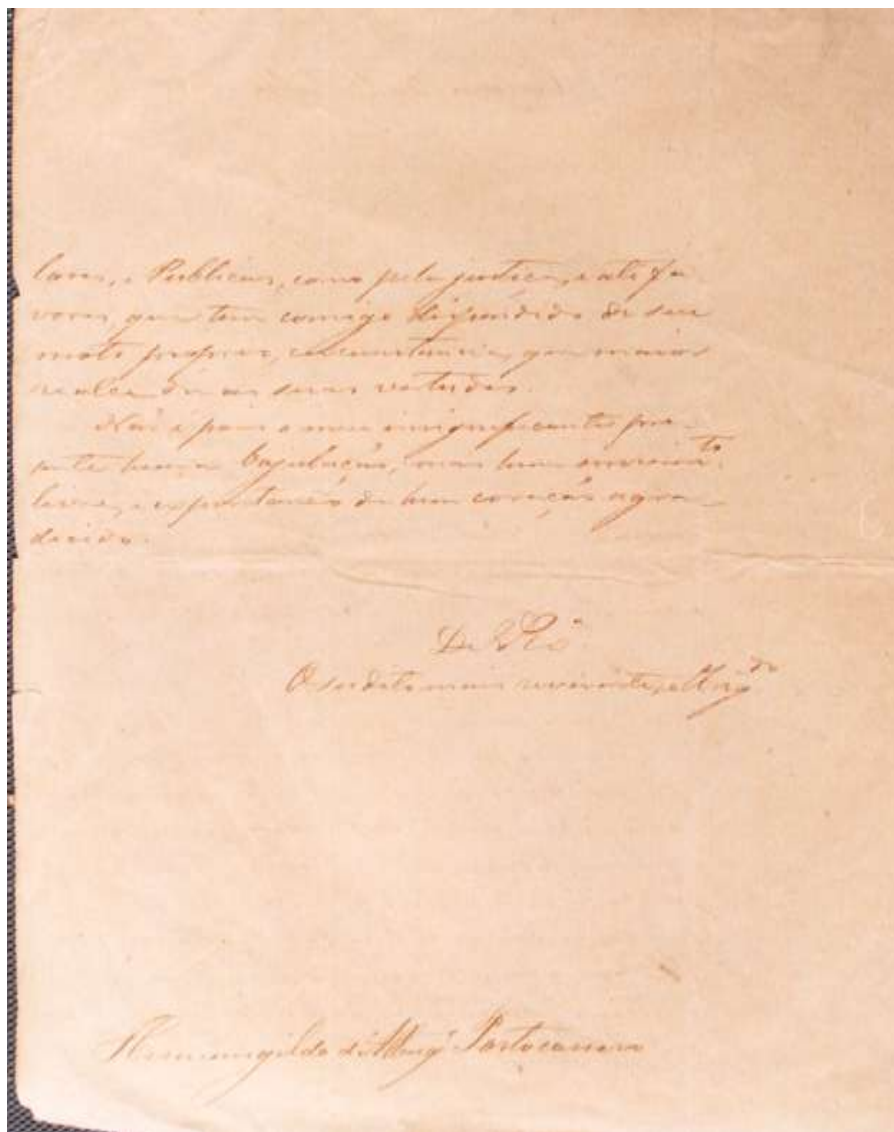 lares, e Publicas, como pela justiça, e até fa-
vores, que tem comigo dispendido de seu
moto proprio, circunstancia, que maior
realce dá as suas vertudes.
Não é pois o meu insignificante pre-
sente huma bajulação, mas hum movim.to
livre, e expontaneo de hum coração agra-
decido.
De V.
O subdito mais reverente, e Obrig.do
Hermenegildo d'Albuq.e Portocarrero